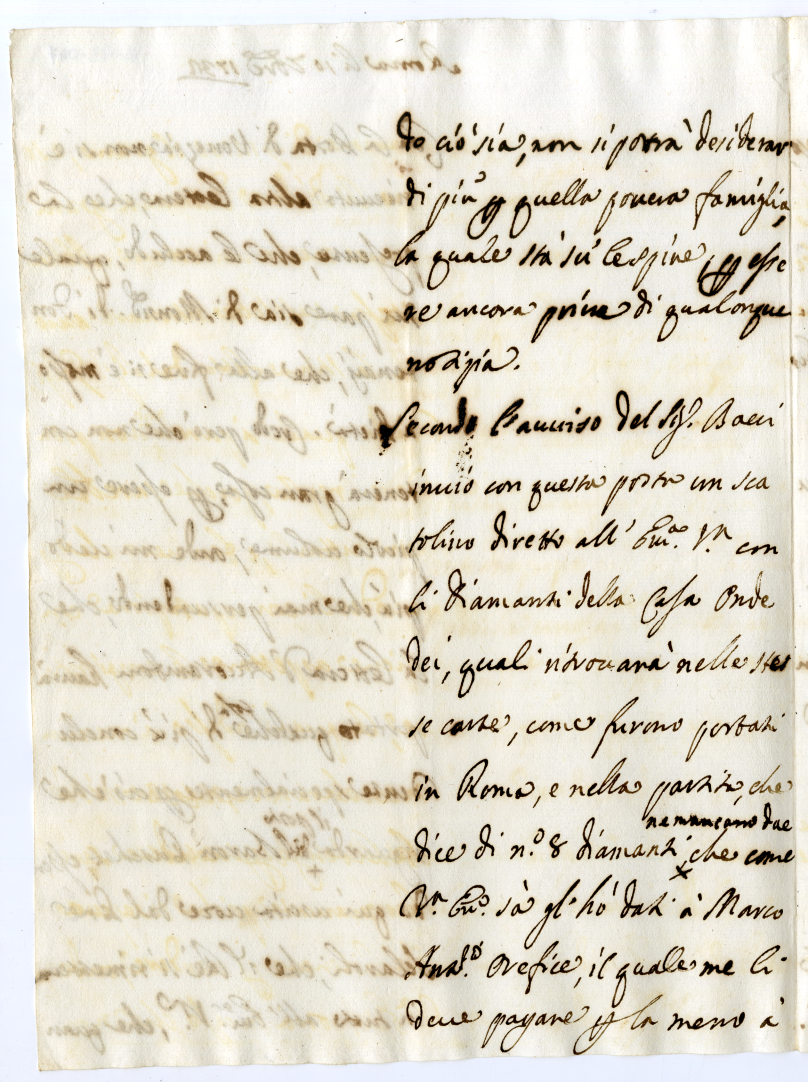 to ciò sia, non si potrà desiderar
di più p quella povera famiglia,
la quale stà sù le spine, p esse
re ancora priva di qualonque
notizia.
Secondo l'avviso del Sig.r Bacci
inviò con questa posta un sca
tolino diretto all' Em.a V.ra con
li diamanti della Casa Onde
dei, quali ritrovarà nelle stes
se carte, come furono portati
in Roma, e nella partita, che
ne mancano due
dice di n.o 8 diamanti, che come
V.ra Em.a sà gl' hò dati à Marco
Ant.o Orefice, il quale me li
deve pagare p la meno à